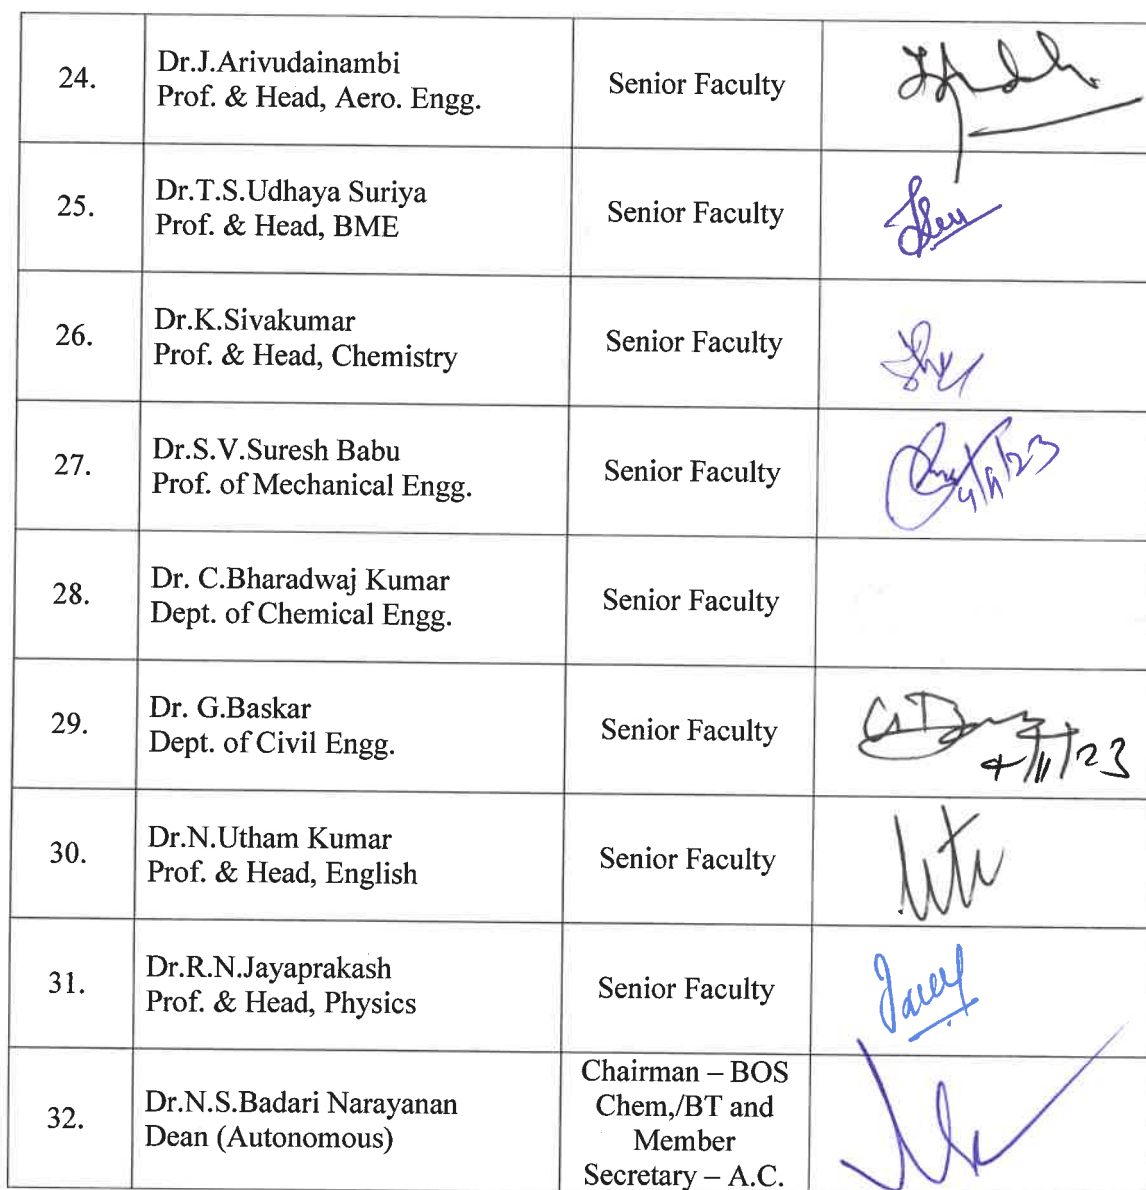 24.
Dr.J.Arivudainambi
Prof. & Head, Aero. Engg.
Senior Faculty
25.
Dr.T.S.Udhaya Suriya
Prof. & Head, BME
Senior Faculty
26.
Dr.K.Sivakumar
Prof. & Head, Chemistry
Senior Faculty
27.
Dr.S.V.Suresh Babu
Prof. of Mechanical Engg.
Senior Faculty
4/11/23
28.
Dr. C.Bharadwaj Kumar
Dept. of Chemical Engg.
Senior Faculty
29.
Dr. G.Baskar
Dept. of Civil Engg.
Senior Faculty
4/11/23
30.
Dr.N.Utham Kumar
Prof. & Head, English
Senior Faculty
31.
Dr.R.N.Jayaprakash
Prof. & Head, Physics
Senior Faculty
32.
Dr.N.S.Badari Narayanan
Dean (Autonomous)
Chairman – BOS
Chem,/BT and
Member
Secretary – A.C.